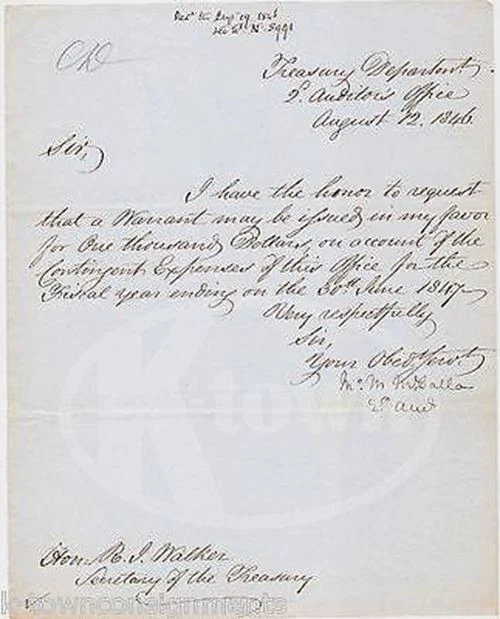 Treasury Departmt.
2d. Auditor's Office
August 12. 1846.
Sir,
I have the honor to request
that a Warrant may be issued in my favor
for One thousand Dollars, on account of the
Contingent Expenses of this Office for the
Fiscal year ending on the 30th June 1847.
Very respectfully
Sir,
Your Obedt. Servt.
2d Aud
K-town
Hon. R. J. Walker
Secretary of the Treasury
k-townconsignments